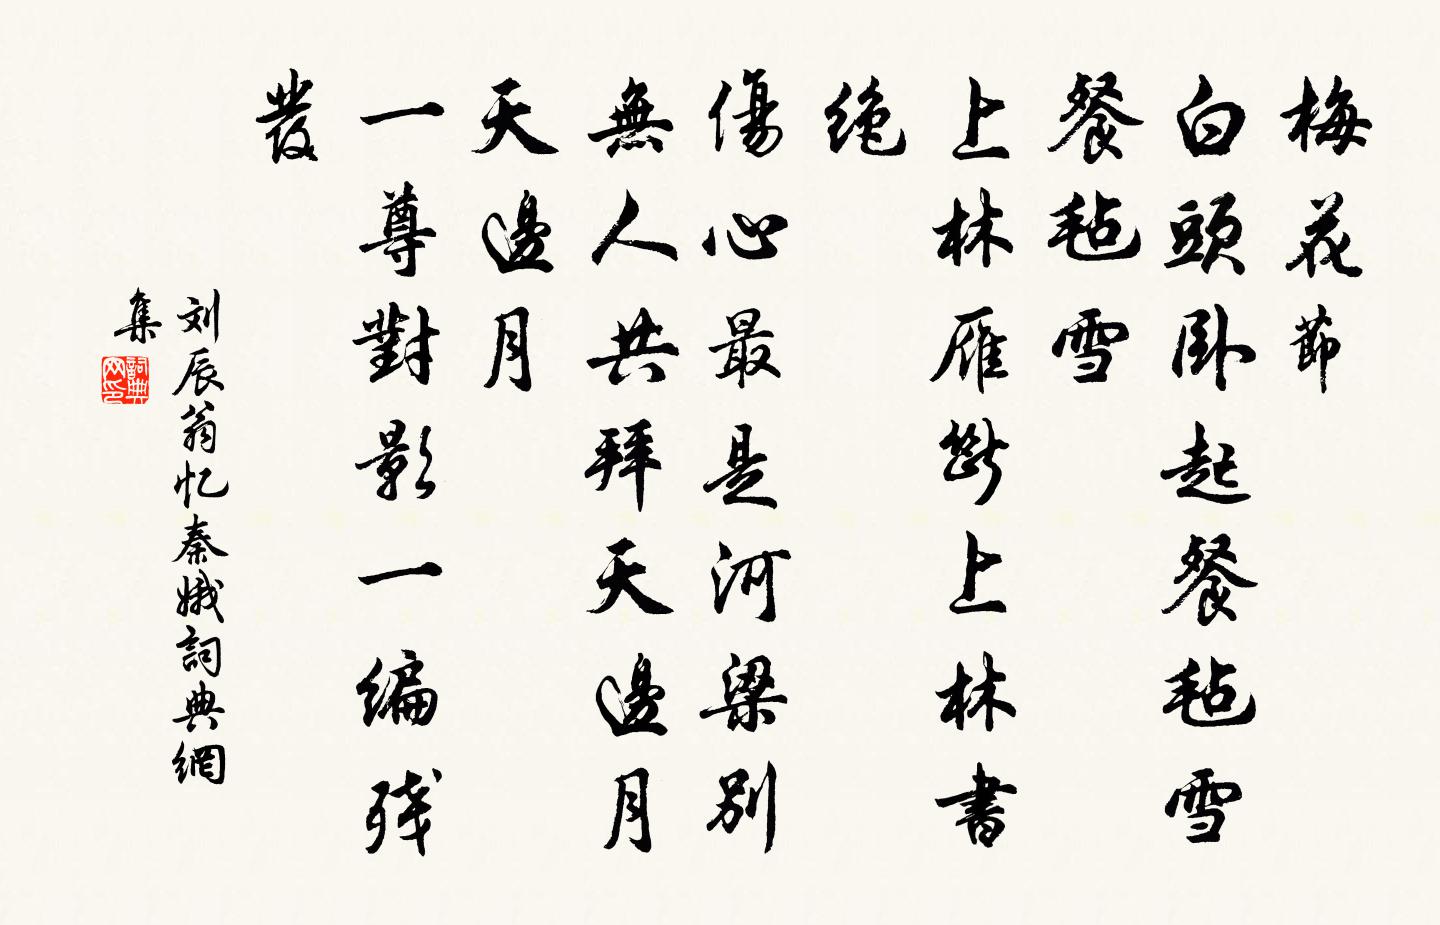 梅花節
白頭卧起餐毡雪
餐毡雪
上林雁斷上林書
絶
傷心最是河梁别
無人共拜天邊月
天邊月
一尊對影一编残
發
刘辰翁忆秦娥詞典網
集
詞典網印